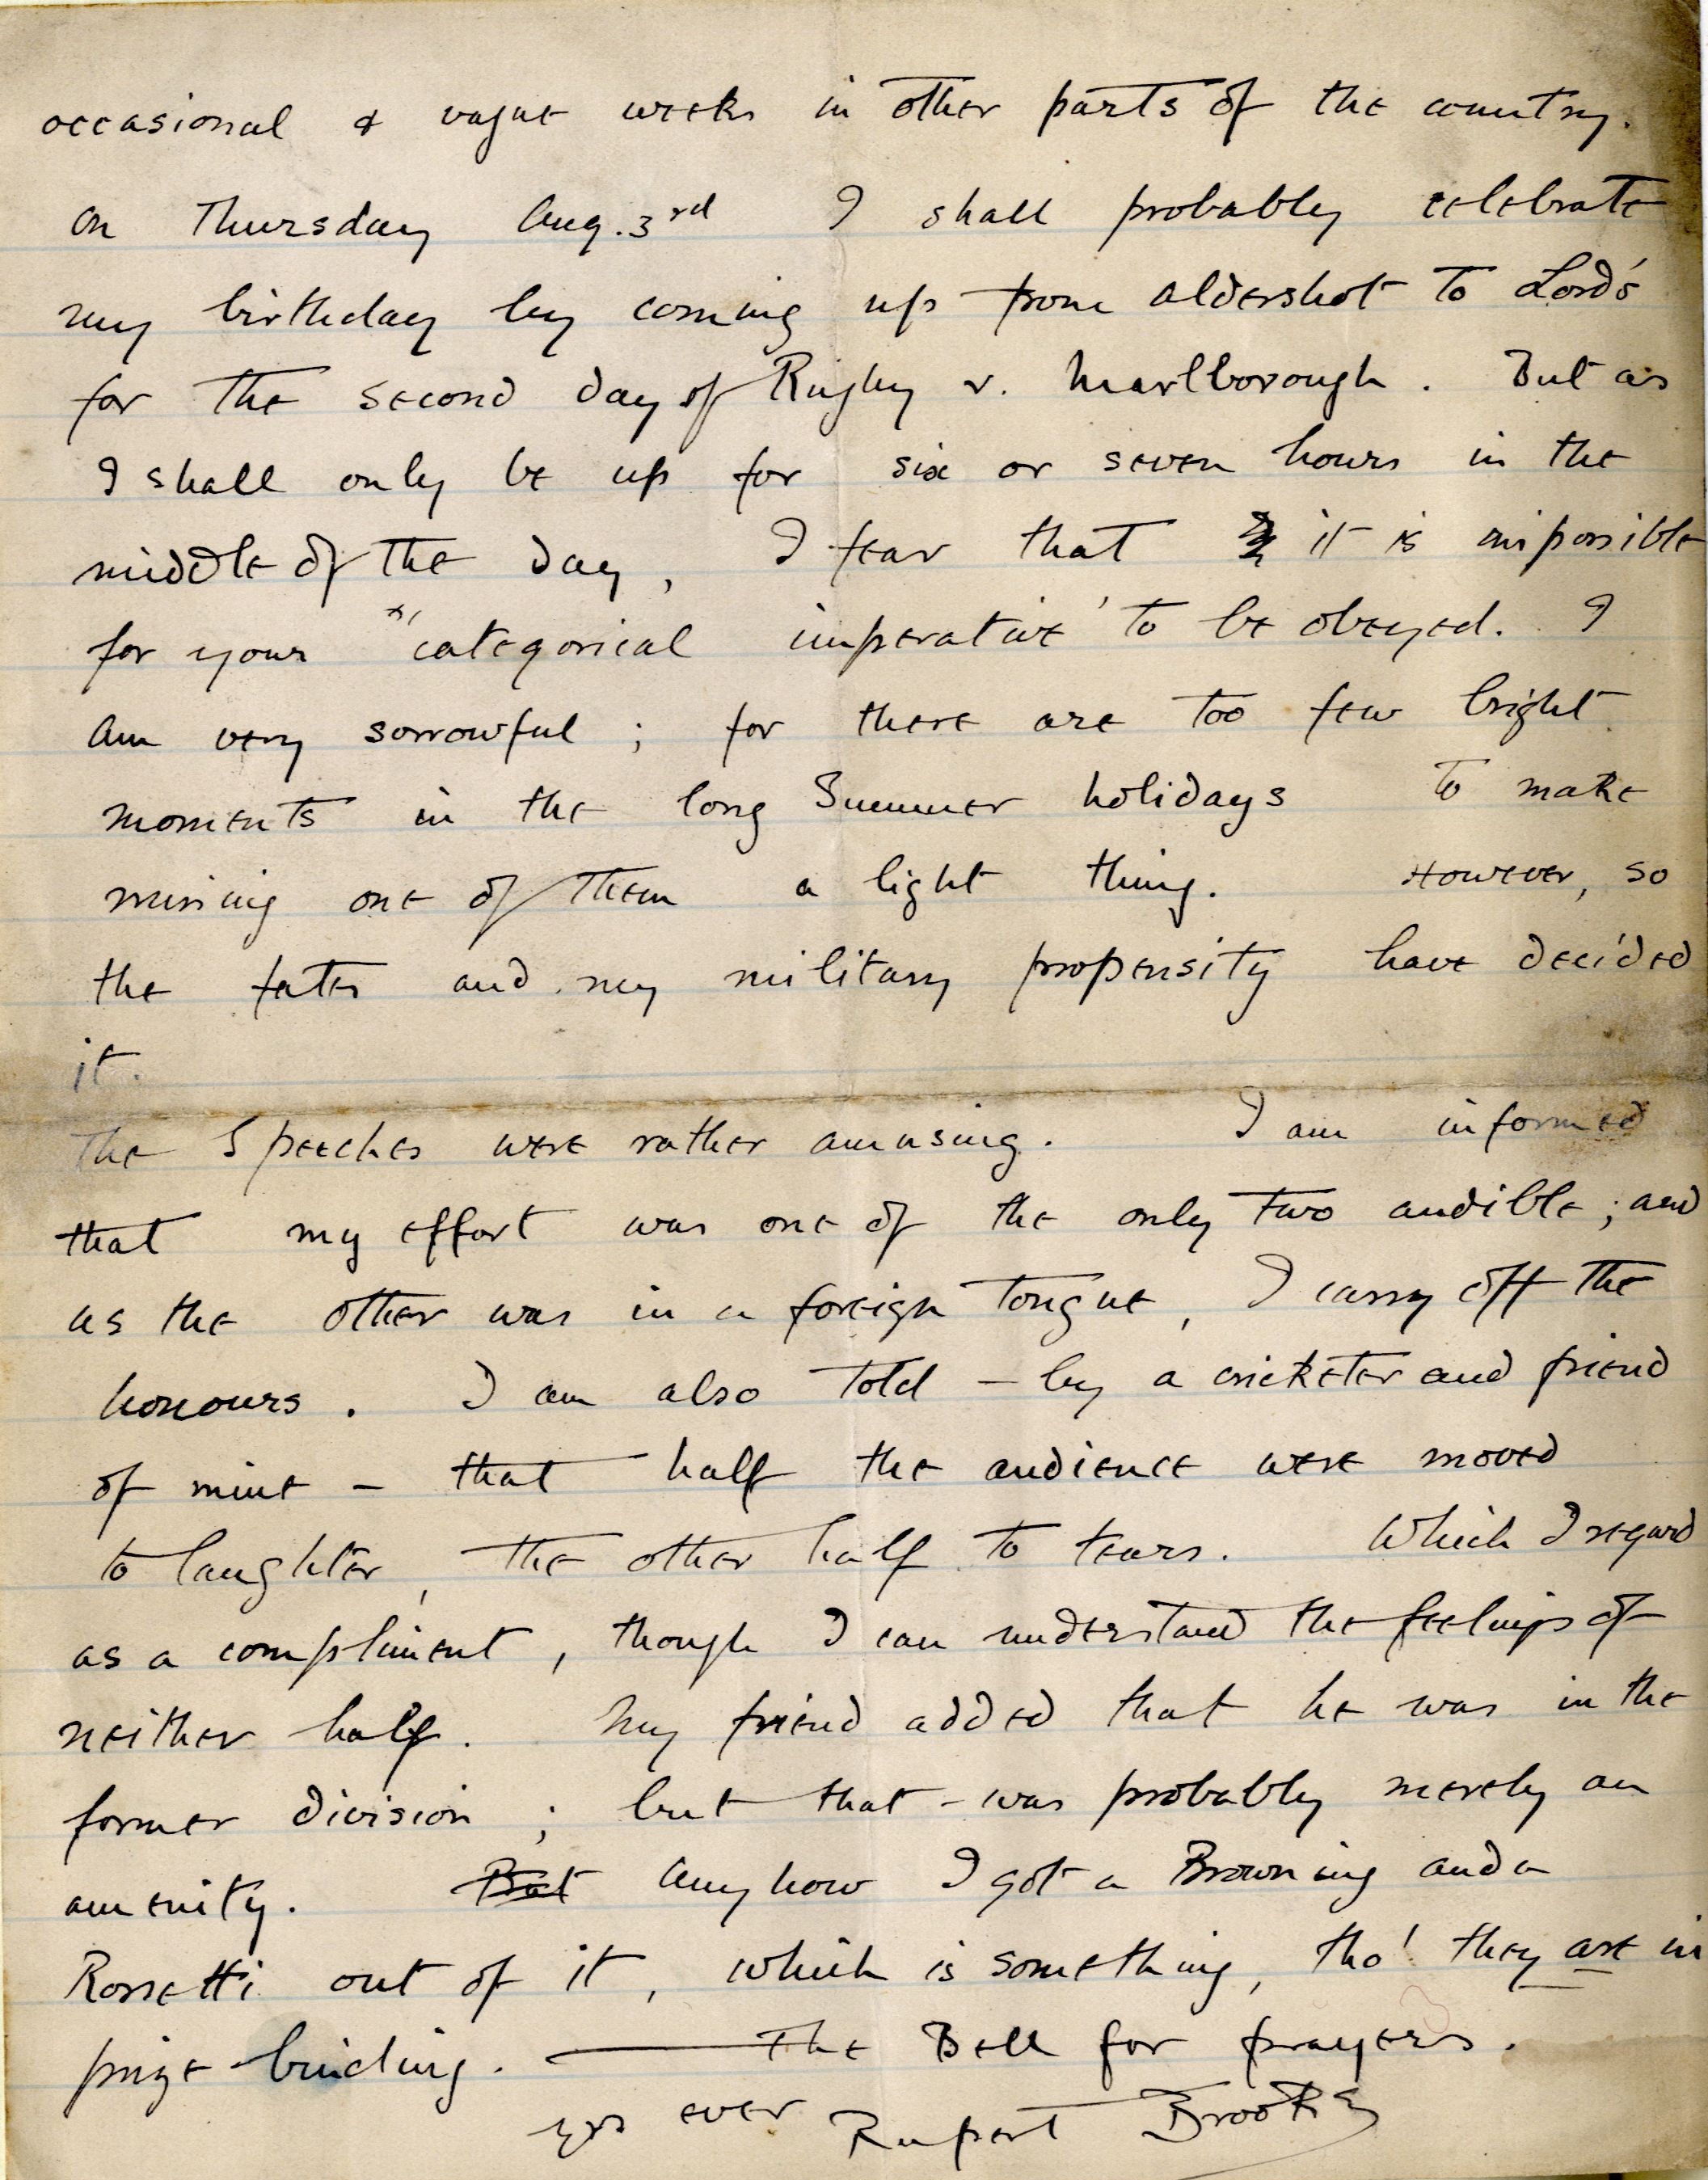 occasional & vague weeks in other parts of the country.
On Thursday Aug. 3rd I shall probably celebrate
my birthday by coming up from Aldershot to Lord's
for the second day of Rugby v. Marlborough. But as
I shall only be up for six or seven hours in the
middle of the day, I fear that it is impossible
for your "categorical imperative' to be obeyed. I
am very sorrowful; for there are too few bright
moments in the long Summer holidays to make
missing one of them a light thing. However, so
the fates and my military propensity have decided
it.
The Speeches were rather amusing. I am informed
that my effort was one of the only two audible; and
as the other was in a foreign tongue, I carry off the
honours. I am also told – by a cricketer and friend
of mine – that half the audience were moved
to laughter, the other half to tears. Which I regard
as a compliment, though I can understand the feelings of
neither half. My friend added that he was in the
former division; but that was probably merely an
amenity. But Anyhow I got a Browning and a
Rossetti out of it, which is something, tho' they are in
prize-binding. — The Bell for prayers.
yrs ever Rupert Brooke